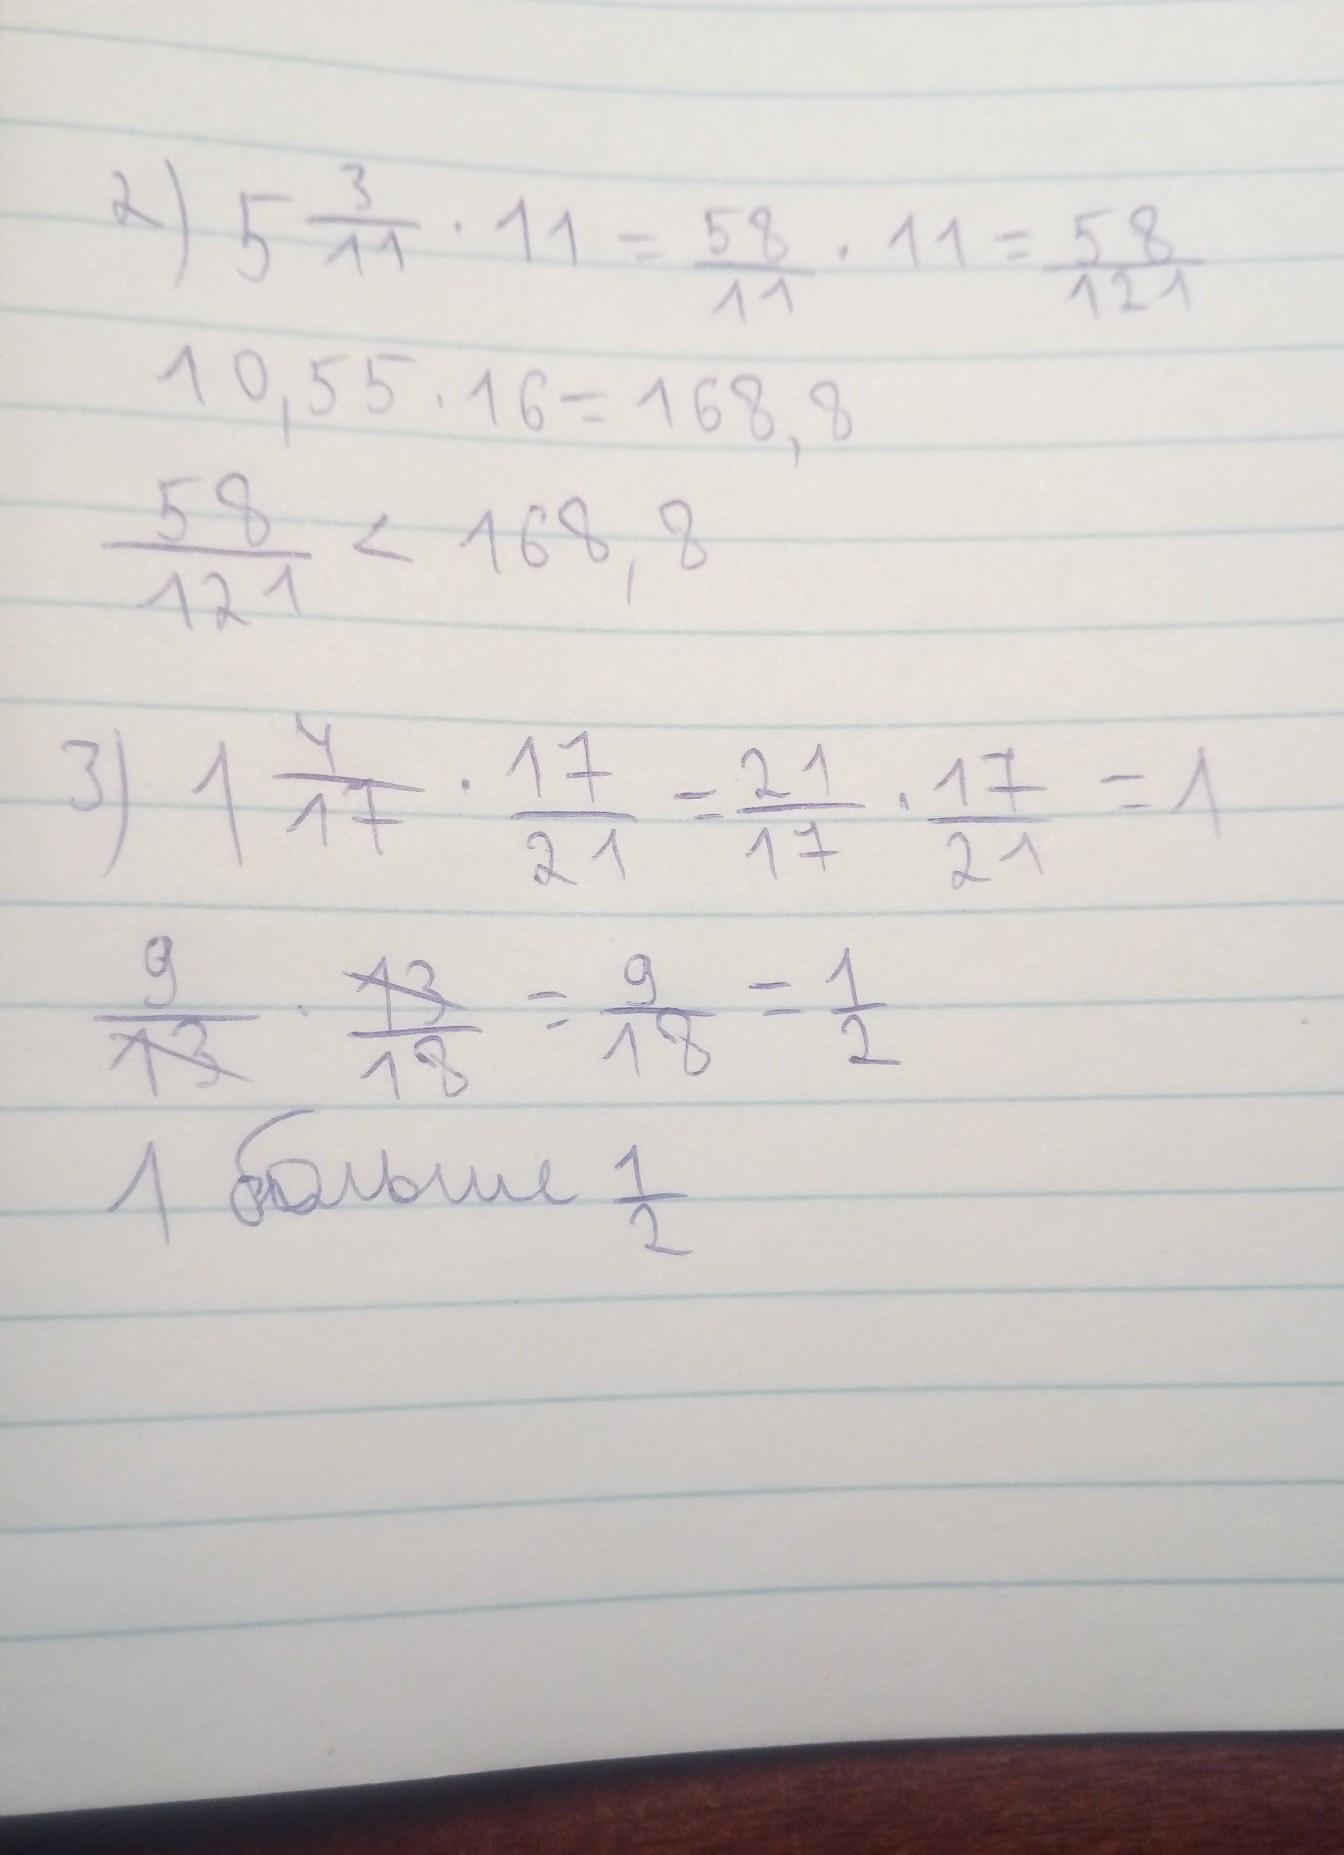 2) 5 3/11 · 11 = 58/11 · 11 = 58/121
10,55 · 16 = 168,8
58/121 < 168,8
3) 1 4/17 · 17/21 = 21/17 · 17/21 = 1
9/13 · 13/18 = 9/18 = 1/2
1 больше 1/2